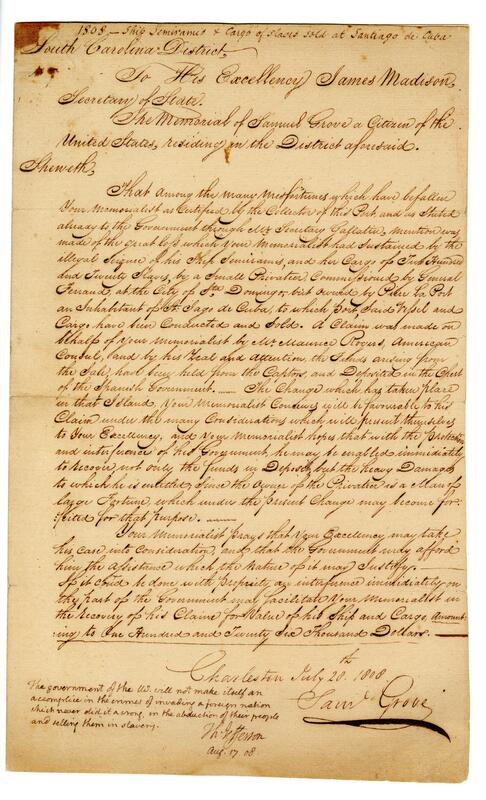 1808 - Ship Semiramis & Cargo of Slaves sold at Santiago de Cuba
South Carolina District.
To His Excellency James Madison,
Secretary of State.
The Memorial of Samuel Grove a Citizen of the
United States, residing in the District aforesaid.
Sheweth,
That among the many Misfortunes which have befallen
Your Memorialist as Certified by the Collector of this Port, and as Stated
already to the Government through Mr Secretary Gallatin, mention was
made of the great loss which Your Memorialist had Sustained by the
illegal Seizure of his Ship Semiramis, and her Cargo of Two Hundred
and Twenty Slaves, by a Small Privateer Commissioned by General
Ferrand, at the City of Sto Domingo, but owned by Peter La Port
an Inhabitant of St Jago de Cuba, to which Port, Said Vessel and
Cargo, have been Conducted and Sold. A Claim was made on
behalf of Your Memorialist by Mr Maurice Rogers, American
Consul, and by his Zeal and attention, the Funds arising from
the Sale, have been held from the Captors, and Deposited in the Chest
of the Spanish Government. The Change which has taken place
in that Island, Your Memorialist Conceives will be favourable to his
Claim under the many Considerations which will present themselves
to Your Excellency, and Your Memorialist hopes that with the Protection
and interference of his Government, he may be enabled immediately
to recover not only the funds in Deposit, but the heavy Damages
to which he is entitled, Since the Owner of the Privateer is a Man of
large Fortune, which under the present Change may become for-
feited for that purpose.
Your Memorialist prays that Your Excellency may take
his case into Consideration, and that the Government may afford
him the Assistance which the Nature of it may Justify.
If it Could be done with propriety, an interference immediately on
the part of the Government may facilitate Your Memorialist in
the recovery of his Claim for Value of his Ship and Cargo, Amount-
ing to One Hundred and Twenty Six Thousand Dollars.
Charleston July 20th 1808
Saml Grove
The government of the US. will not make itself an
accomplice in the crimes of invading a foreign nation
which never did it a wrong, in the abduction of their people
and selling them in slavery.
Th Jefferson
Aug. 17. 08